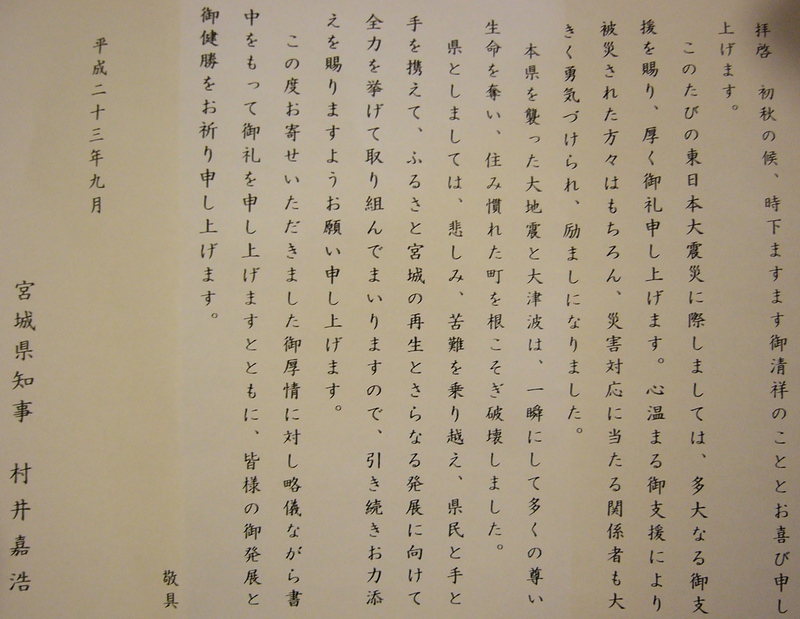 拝啓　初秋の候、時下ますます御清祥のこととお喜び申し
上げます。
このたびの東日本大震災に際しましては、多大なる御支
援を賜り、厚く御礼申し上げます。心温まる御支援により
被災された方々はもちろん、災害対応に当たる関係者も大
きく勇気づけられ、励ましになりました。
本県を襲った大地震と大津波は、一瞬にして多くの尊い
生命を奪い、住み慣れた町を根こそぎ破壊しました。
県としましては、悲しみ、苦難を乗り越え、県民と手と
手を携えて、ふるさと宮城の再生とさらなる発展に向けて
全力を挙げて取り組んでまいりますので、引き続きお力添
えを賜りますようお願い申し上げます。
この度お寄せいただきました御厚情に対し略儀ながら書
中をもって御礼を申し上げますとともに、皆様の御発展と
御健勝をお祈り申し上げます。
敬具
平成二十三年九月
宮城県知事　村井嘉浩